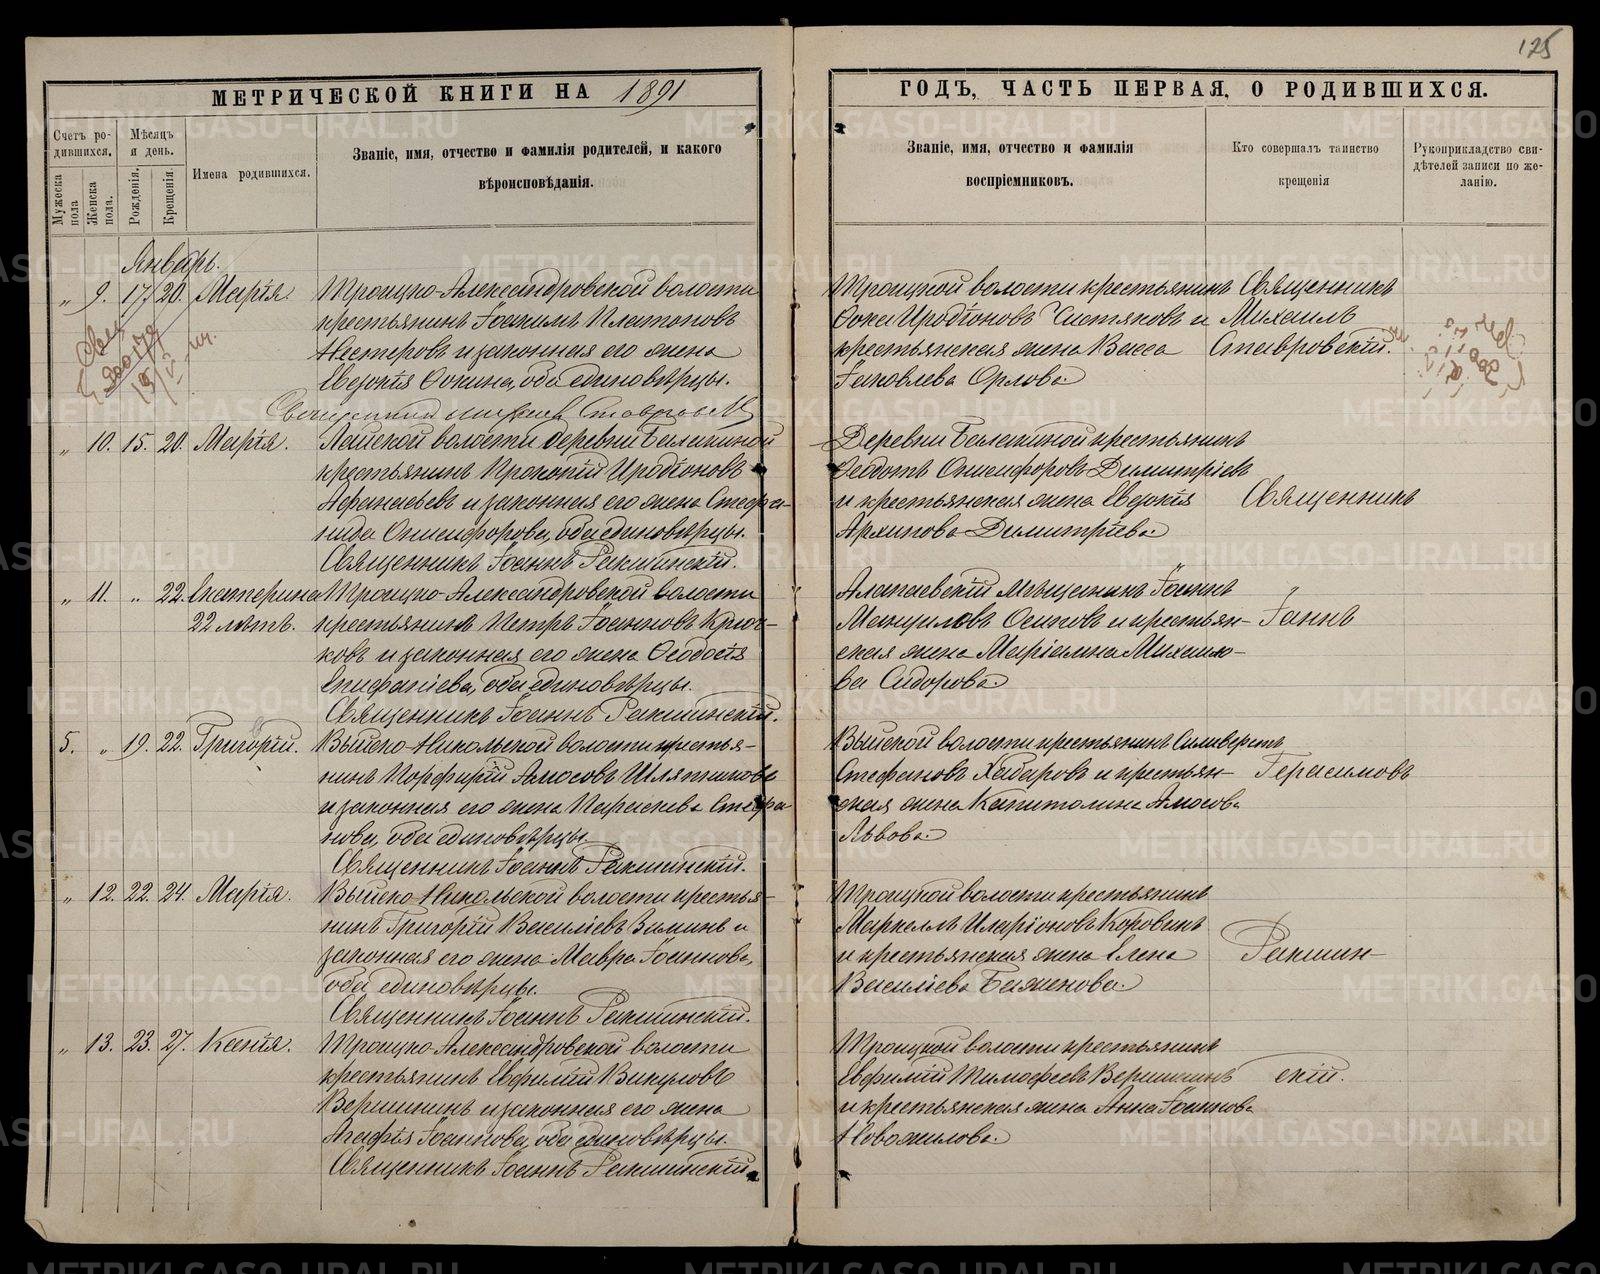 125
МЕТРИЧЕСКОЙ КНИГИ НА 1891
ГОДЪ, ЧАСТЬ ПЕРВАЯ, О РОДИВШИХСЯ.
Счетъ родившихся.
Мужеска пола
Женска пола.
Мѣсяцъ и день.
Рожденія.
Крещенія.
Имена родившихся.
Званіе, имя, отчество и фамилія родителей, и какого
вѣроисповѣданія.
Званіе, имя, отчество и фамилія
воспріемниковъ.
Кто совершалъ таинство
крещенія
Рукоприкладство сви-
дѣтелей записи по же-
ланію.
Январь.
„ 9. 17. 20. Марія. Троицко-Александровской волости
крестьянинъ Іоакимъ Платоновъ
Нестеровъ и законная его жена
Евдокія Фокина, оба единовѣрцы.
Священникъ Михаилъ Ставровскій
Троицкой волости крестьянинъ
Фока Иродіоновъ Чистяковъ и
крестьянская жена Васса
Іаковлева Орлова.
Священникъ
Михаилъ
Ставровскій.
„ 10. 15. 20. Марія. Лайской волости деревни Балакиной
крестьянинъ Прокопій Иродіоновъ
Афанасьевъ и законная его жена Стефа-
нида Онисифорова, оба единовѣрцы.
Священникъ Іоаннъ Ракшинскій.
Деревни Балакиной крестьянинъ
Феодотъ Онисифоровъ Димитріевъ
и крестьянская жена Евдокія
Архипова Димитріева.
Священникъ
„ 11. „ 22. Екатерина Троицко-Александровской волости
22 лѣтъ. крестьянинъ Петръ Іоанновъ Крюч-
ковъ и законная его жена Феодосія
Епифаніева, оба единовѣрцы.
Священникъ Іоаннъ Ракшинскій.
Алапаевскій Мѣщанинъ Іоаннъ
Мануиловъ Осиповъ и крестьян-
ская жена Маріамна Михаило-
ва Сидорова.
Іоаннъ
5. „ 19. 22. Григорій. Выйско-Никольской волости крестья-
нинъ Порфирій Амосовъ Шляпниковъ
и законная его жена Параскева Стефа-
нова, оба единовѣрцы.
Священникъ Іоаннъ Ракшинскій.
Выйской волости крестьянинъ Сильверстъ
Стефановъ Хабаровъ и крестьян-
ская жена Капитолина Амосова
Львова.
Герасимовъ
„ 12. 22. 24. Марія. Выйско-Никольской волости крестья-
нинъ Григорій Василіевъ Зиминъ и
законная его жена Мавра Іоаннова,
оба единовѣрцы.
Священникъ Іоаннъ Ракшинскій.
Троицкой волости крестьянинъ
Маркеллъ Иларіоновъ Коровинъ
и крестьянская жена Елена
Василіева Баженова.
Ракшин-
„ 13. 23. 27. Ксенія. Троицко-Александровской волости
крестьянинъ Евфимій Викуловъ
Вершининъ и законная его жена
Агафія Іоаннова, оба единовѣрцы.
Священникъ Іоаннъ Ракшинскій
Троицкой волости крестьянинъ
Евфимій Тимофеевъ Вершининъ
и крестьянская жена Анна Іоаннова
Новожилова.
скій.
METRIKI.GASO-URAL.RU